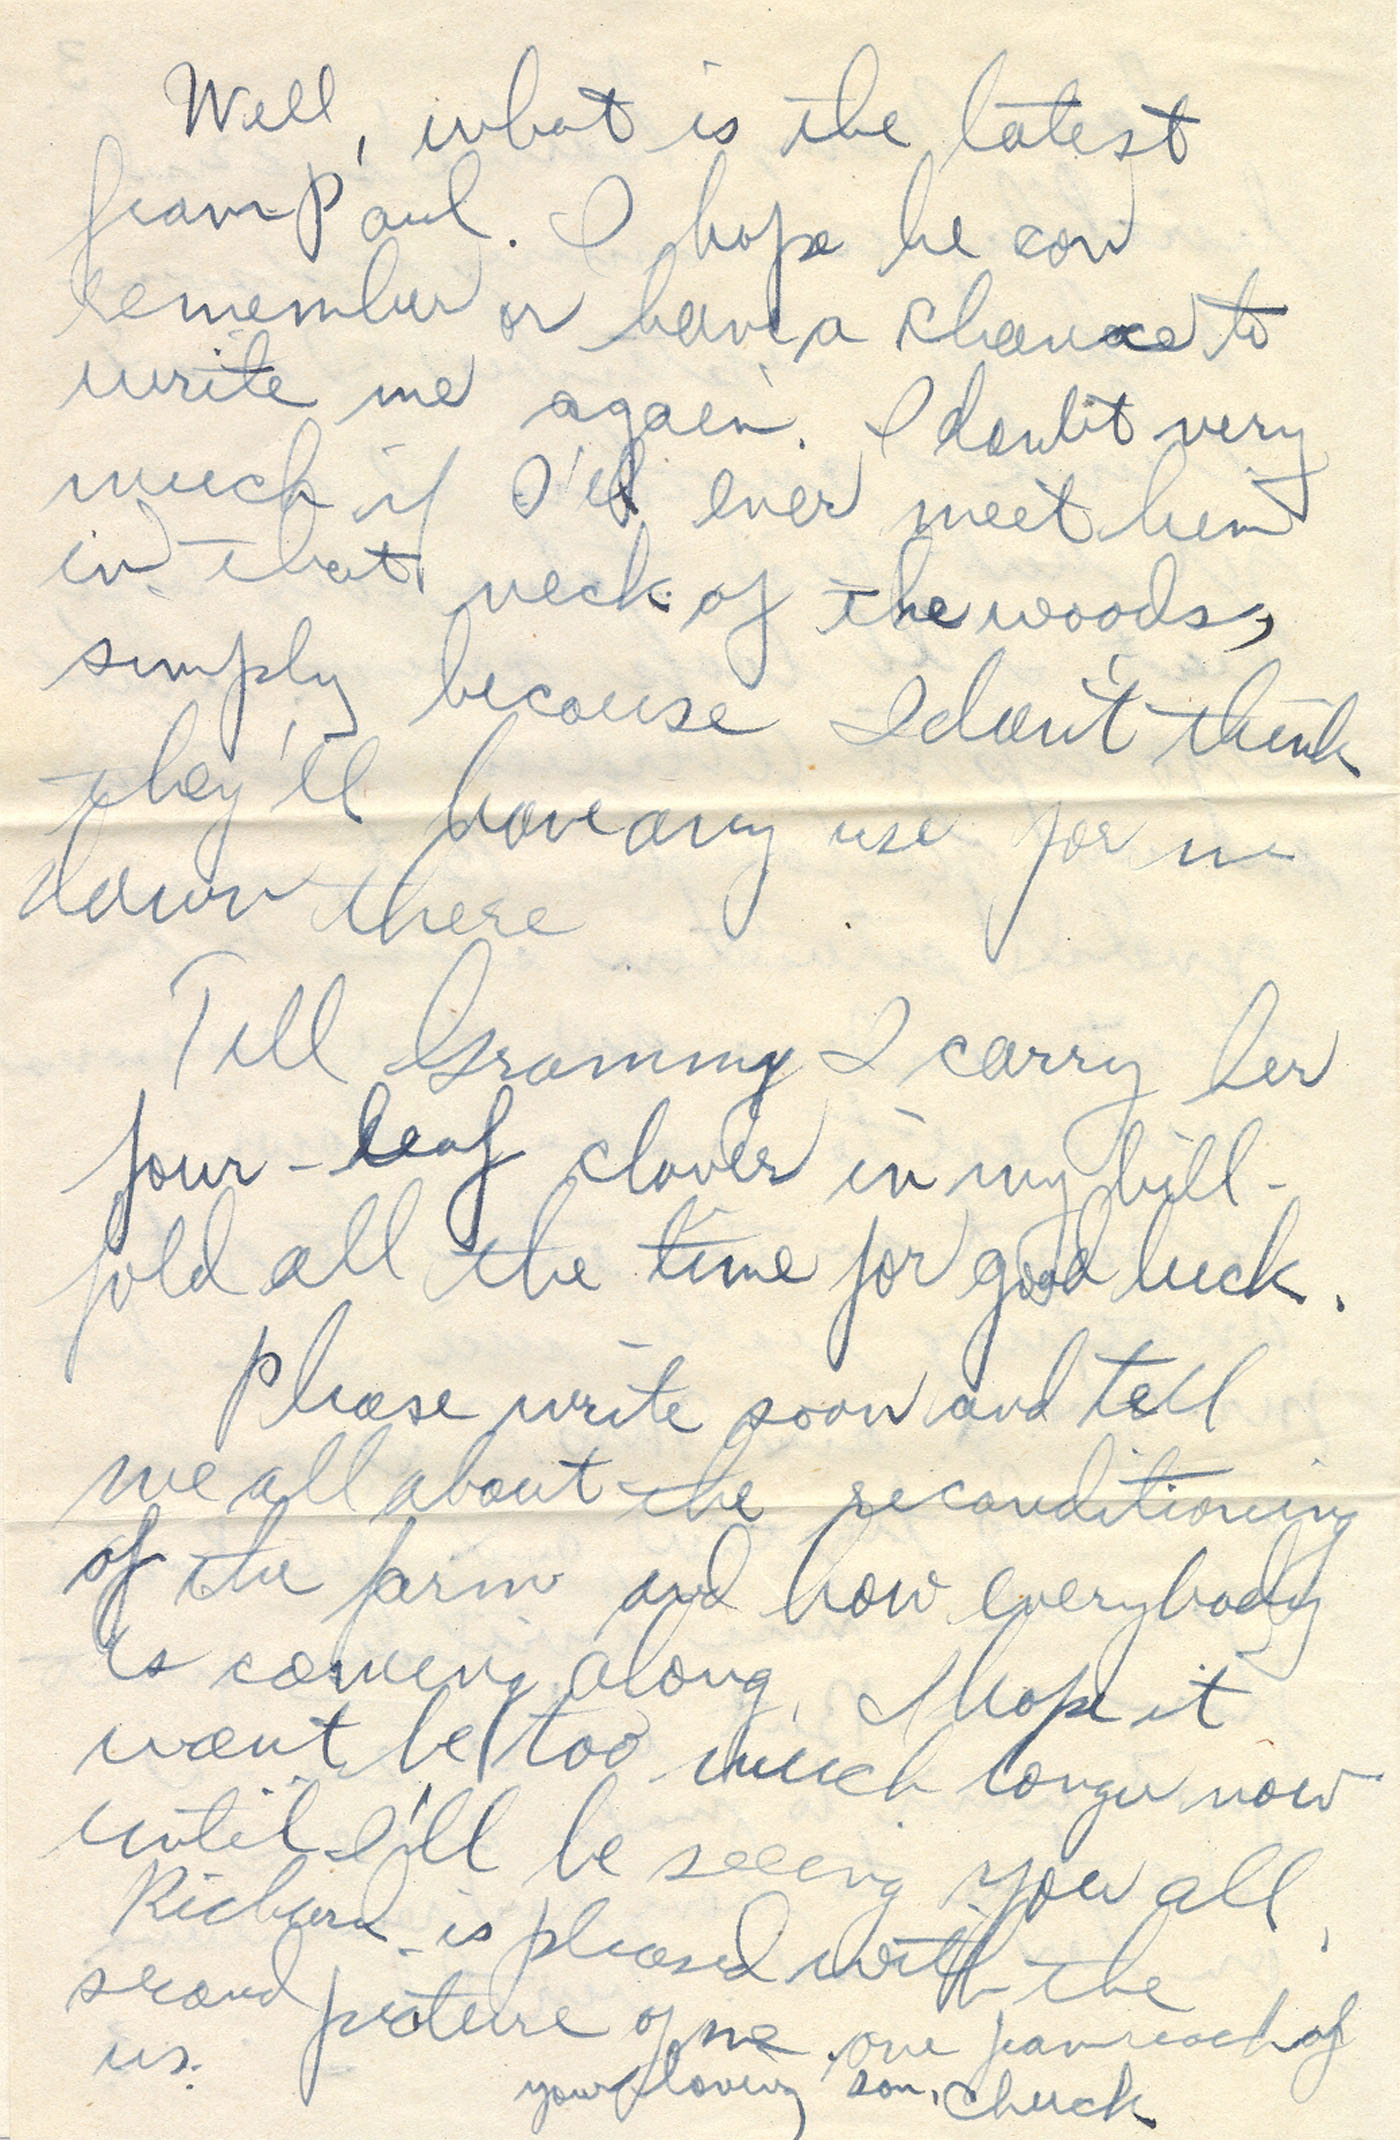 Well, what is the latest
from Paul. I hope he can
remember or have a chance to
write me again. I doubt very
much if I'll ever meet him
in that neck of the woods,
simply because I don't think
they'll have any use for me
down there
Tell Grammy I carry her
four-leaf clover in my bill-
fold all the time for good luck.
Please write soon and tell
me all about the reconditioning
of the farm and how everybody
is coming along. I hope it
wont be too much longer now
until I'll be seeing you all.
Richard is pleased with the
second picture of me one from each of
us.
your loving son, Chuck